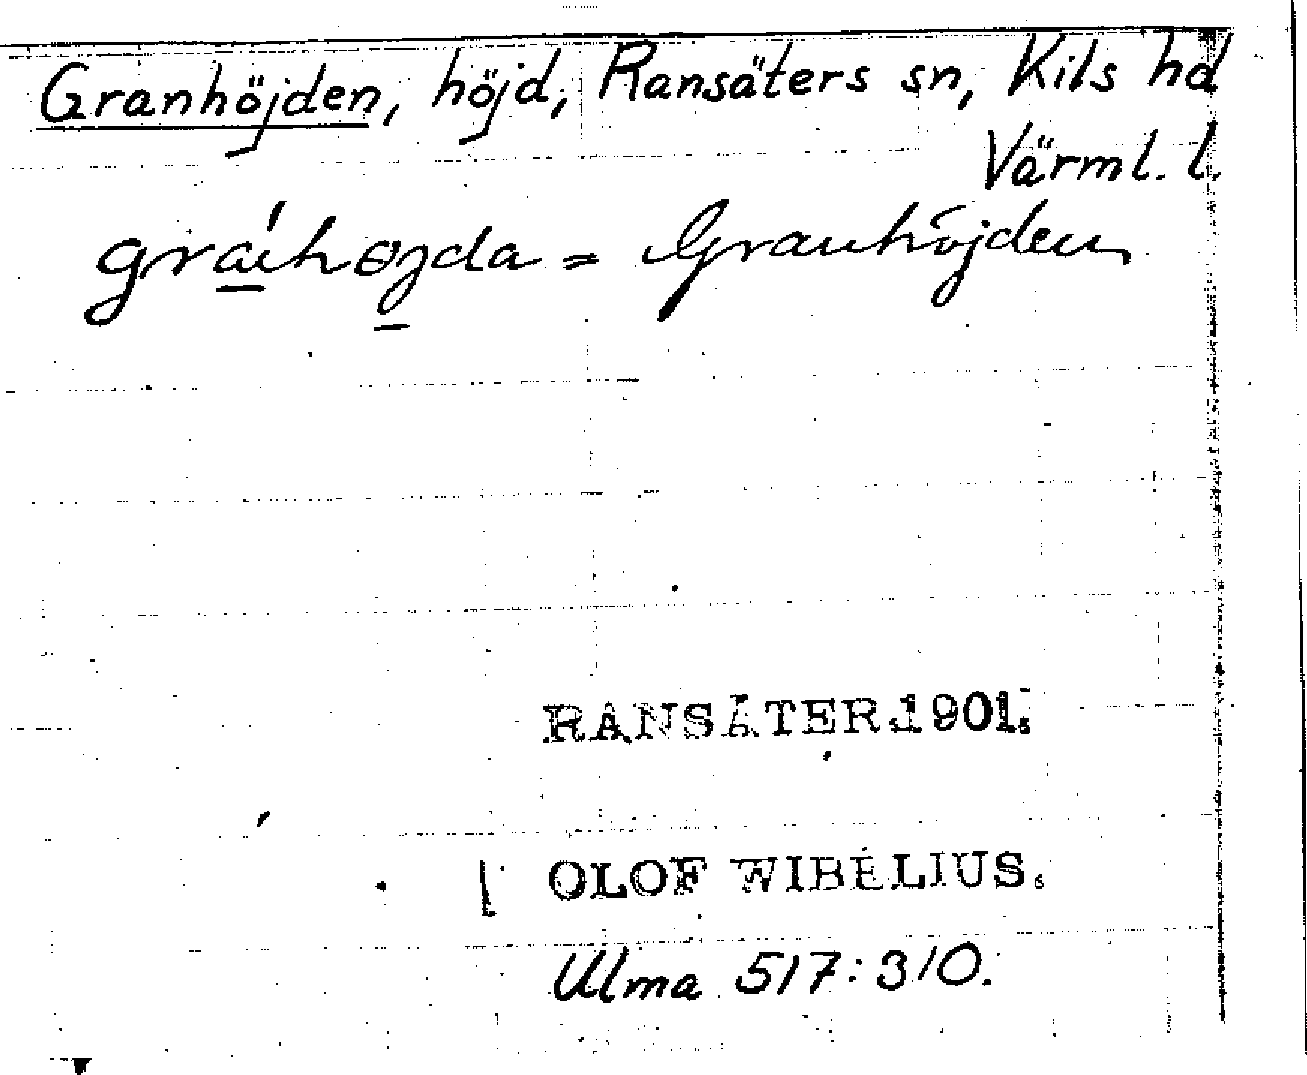 Granhöjden, höjd, Ransäters sn, Kils hd
Värml. l.
= Granhöjden
RANSÄTER 1901.
OLOF WIBELIUS.
Ulma 517:310.